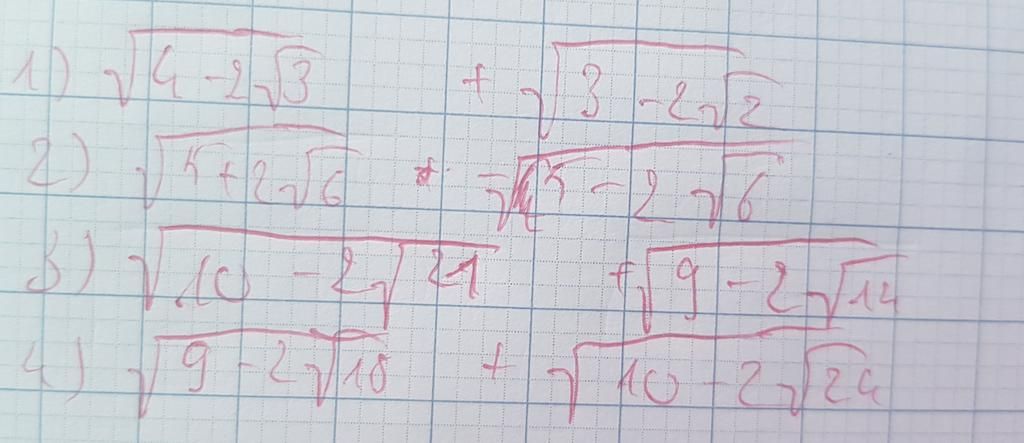 1) √(4 - 2√3) + √(3 - 2√2)
2) √(5 + 2√6) + √(5 - 2√6)
3) √(10 - 2√21) + √(9 - 2√14)
4) √(9 - 2√18) + √(10 - 2√24)